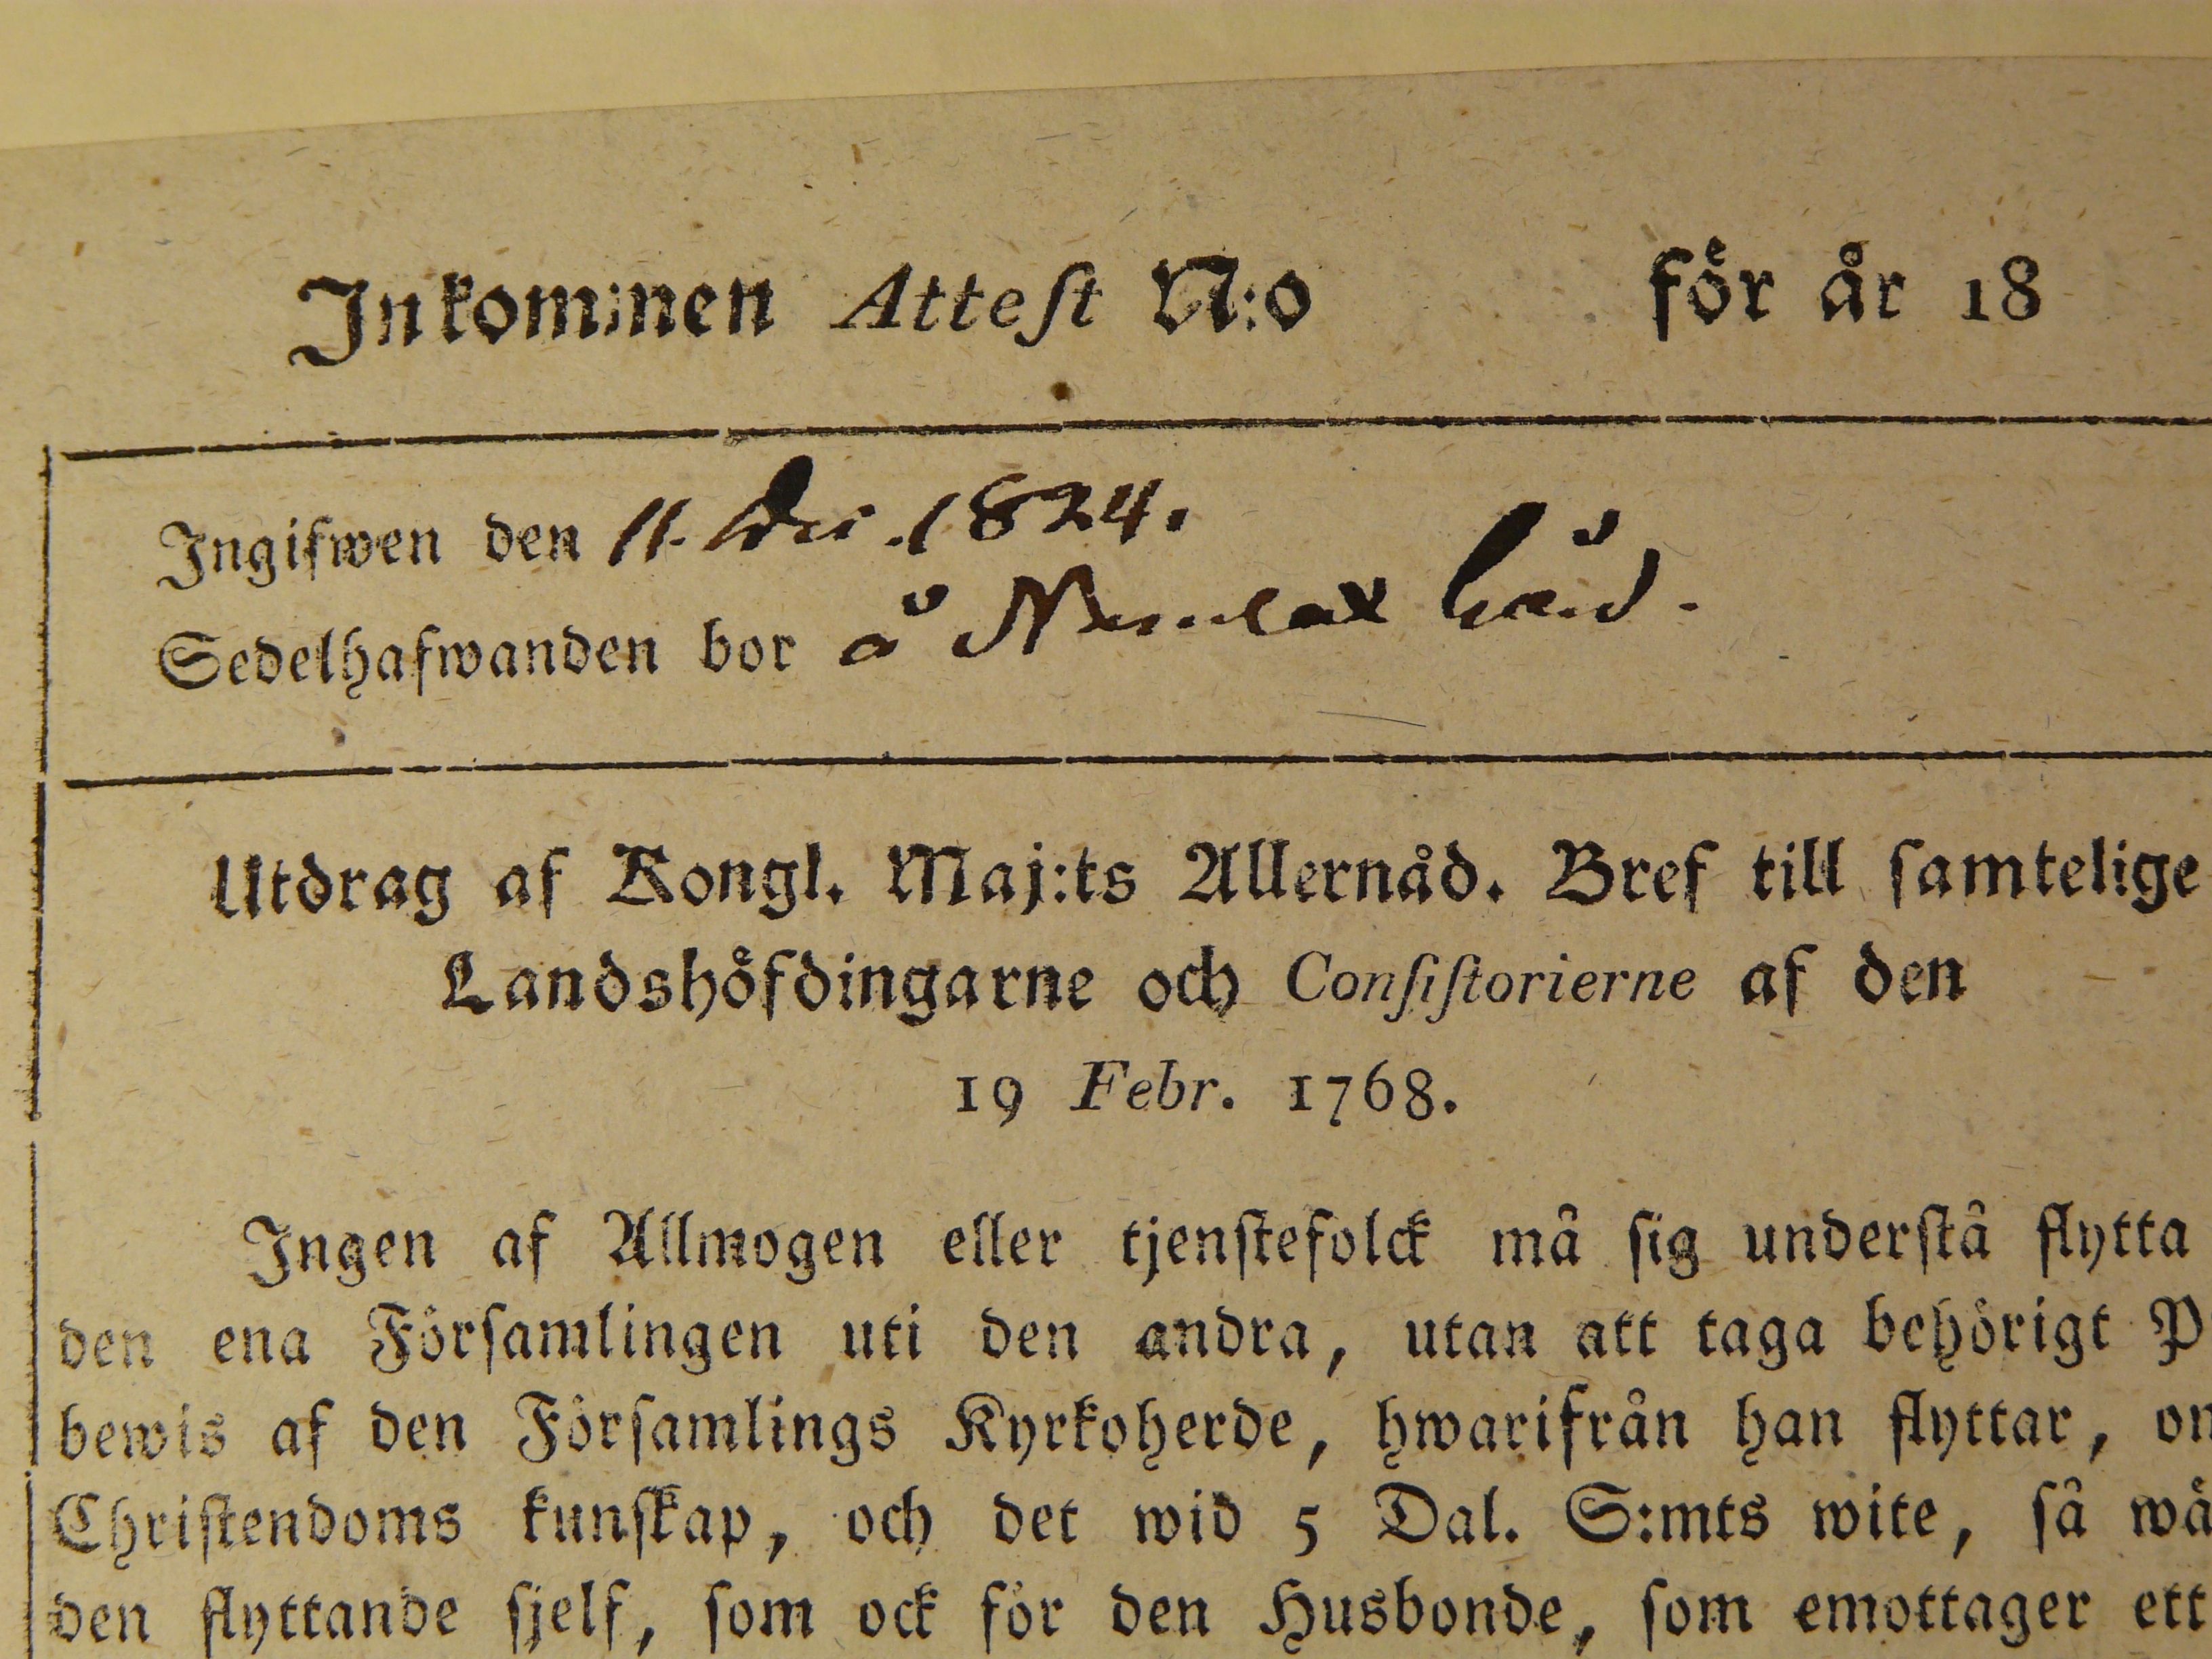 Inkommen Attest N:o för år 18
Ingifwen den 11. Dec. 1824.
Sedelhafwanden bor å
Utdrag af Kongl. Maj:ts Allernåd. Bref till samtelige
Landshöfdingarne och Consistorierne af den
19 Febr. 1768.
Ingen af Allmogen eller tjenstefolck må sig understå flytta
den ena Församlingen uti den andra, utan att taga behörigt P
bewis af den Församlings Kyrkoherde, hwarifrån han flyttar, om
Christendoms kunskap, och det wid 5 Dal. S:mts wite, så wä
den flyttande sjelf, som ock för den Husbonde, som emottager ett